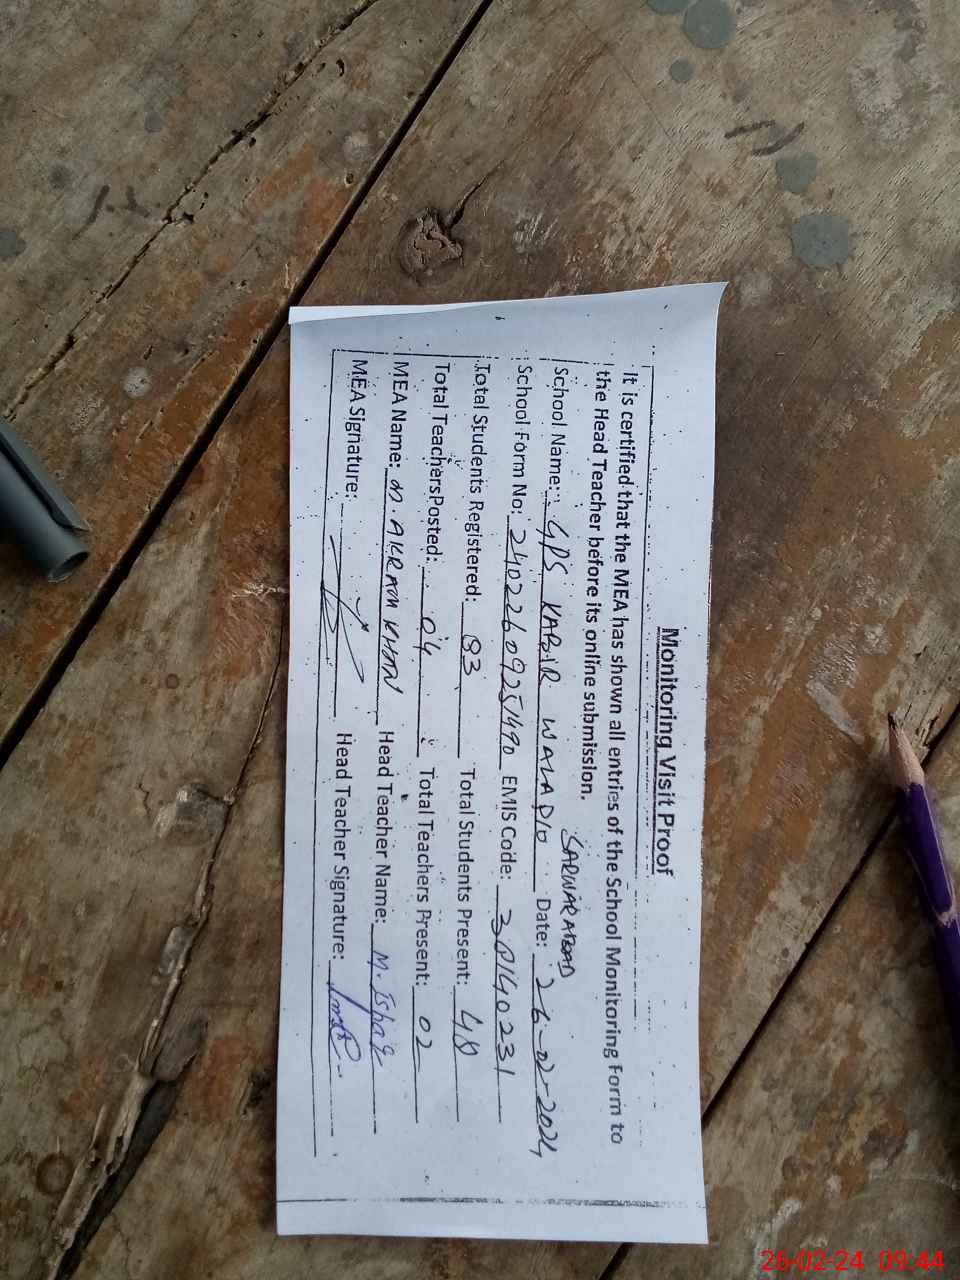 Monitoring Visit Proof
It is certified that the MEA has shown all entries of the School Monitoring Form to
the Head Teacher before its online submission.
SARWARABAD
School Name: GPS KABIR WALA D/O Date: 26-02-2024
School Form No: 2402260925490 EMIS Code: 38140231
Total Students Registered: 83 Total Students Present: 48
Total TeachersPosted: 04 Total Teachers Present: 02
MEA Name: M. AKRAM KHAN Head Teacher Name: M. Ishaq
MEA Signature: Head Teacher Signature:
26-02-24 09:44